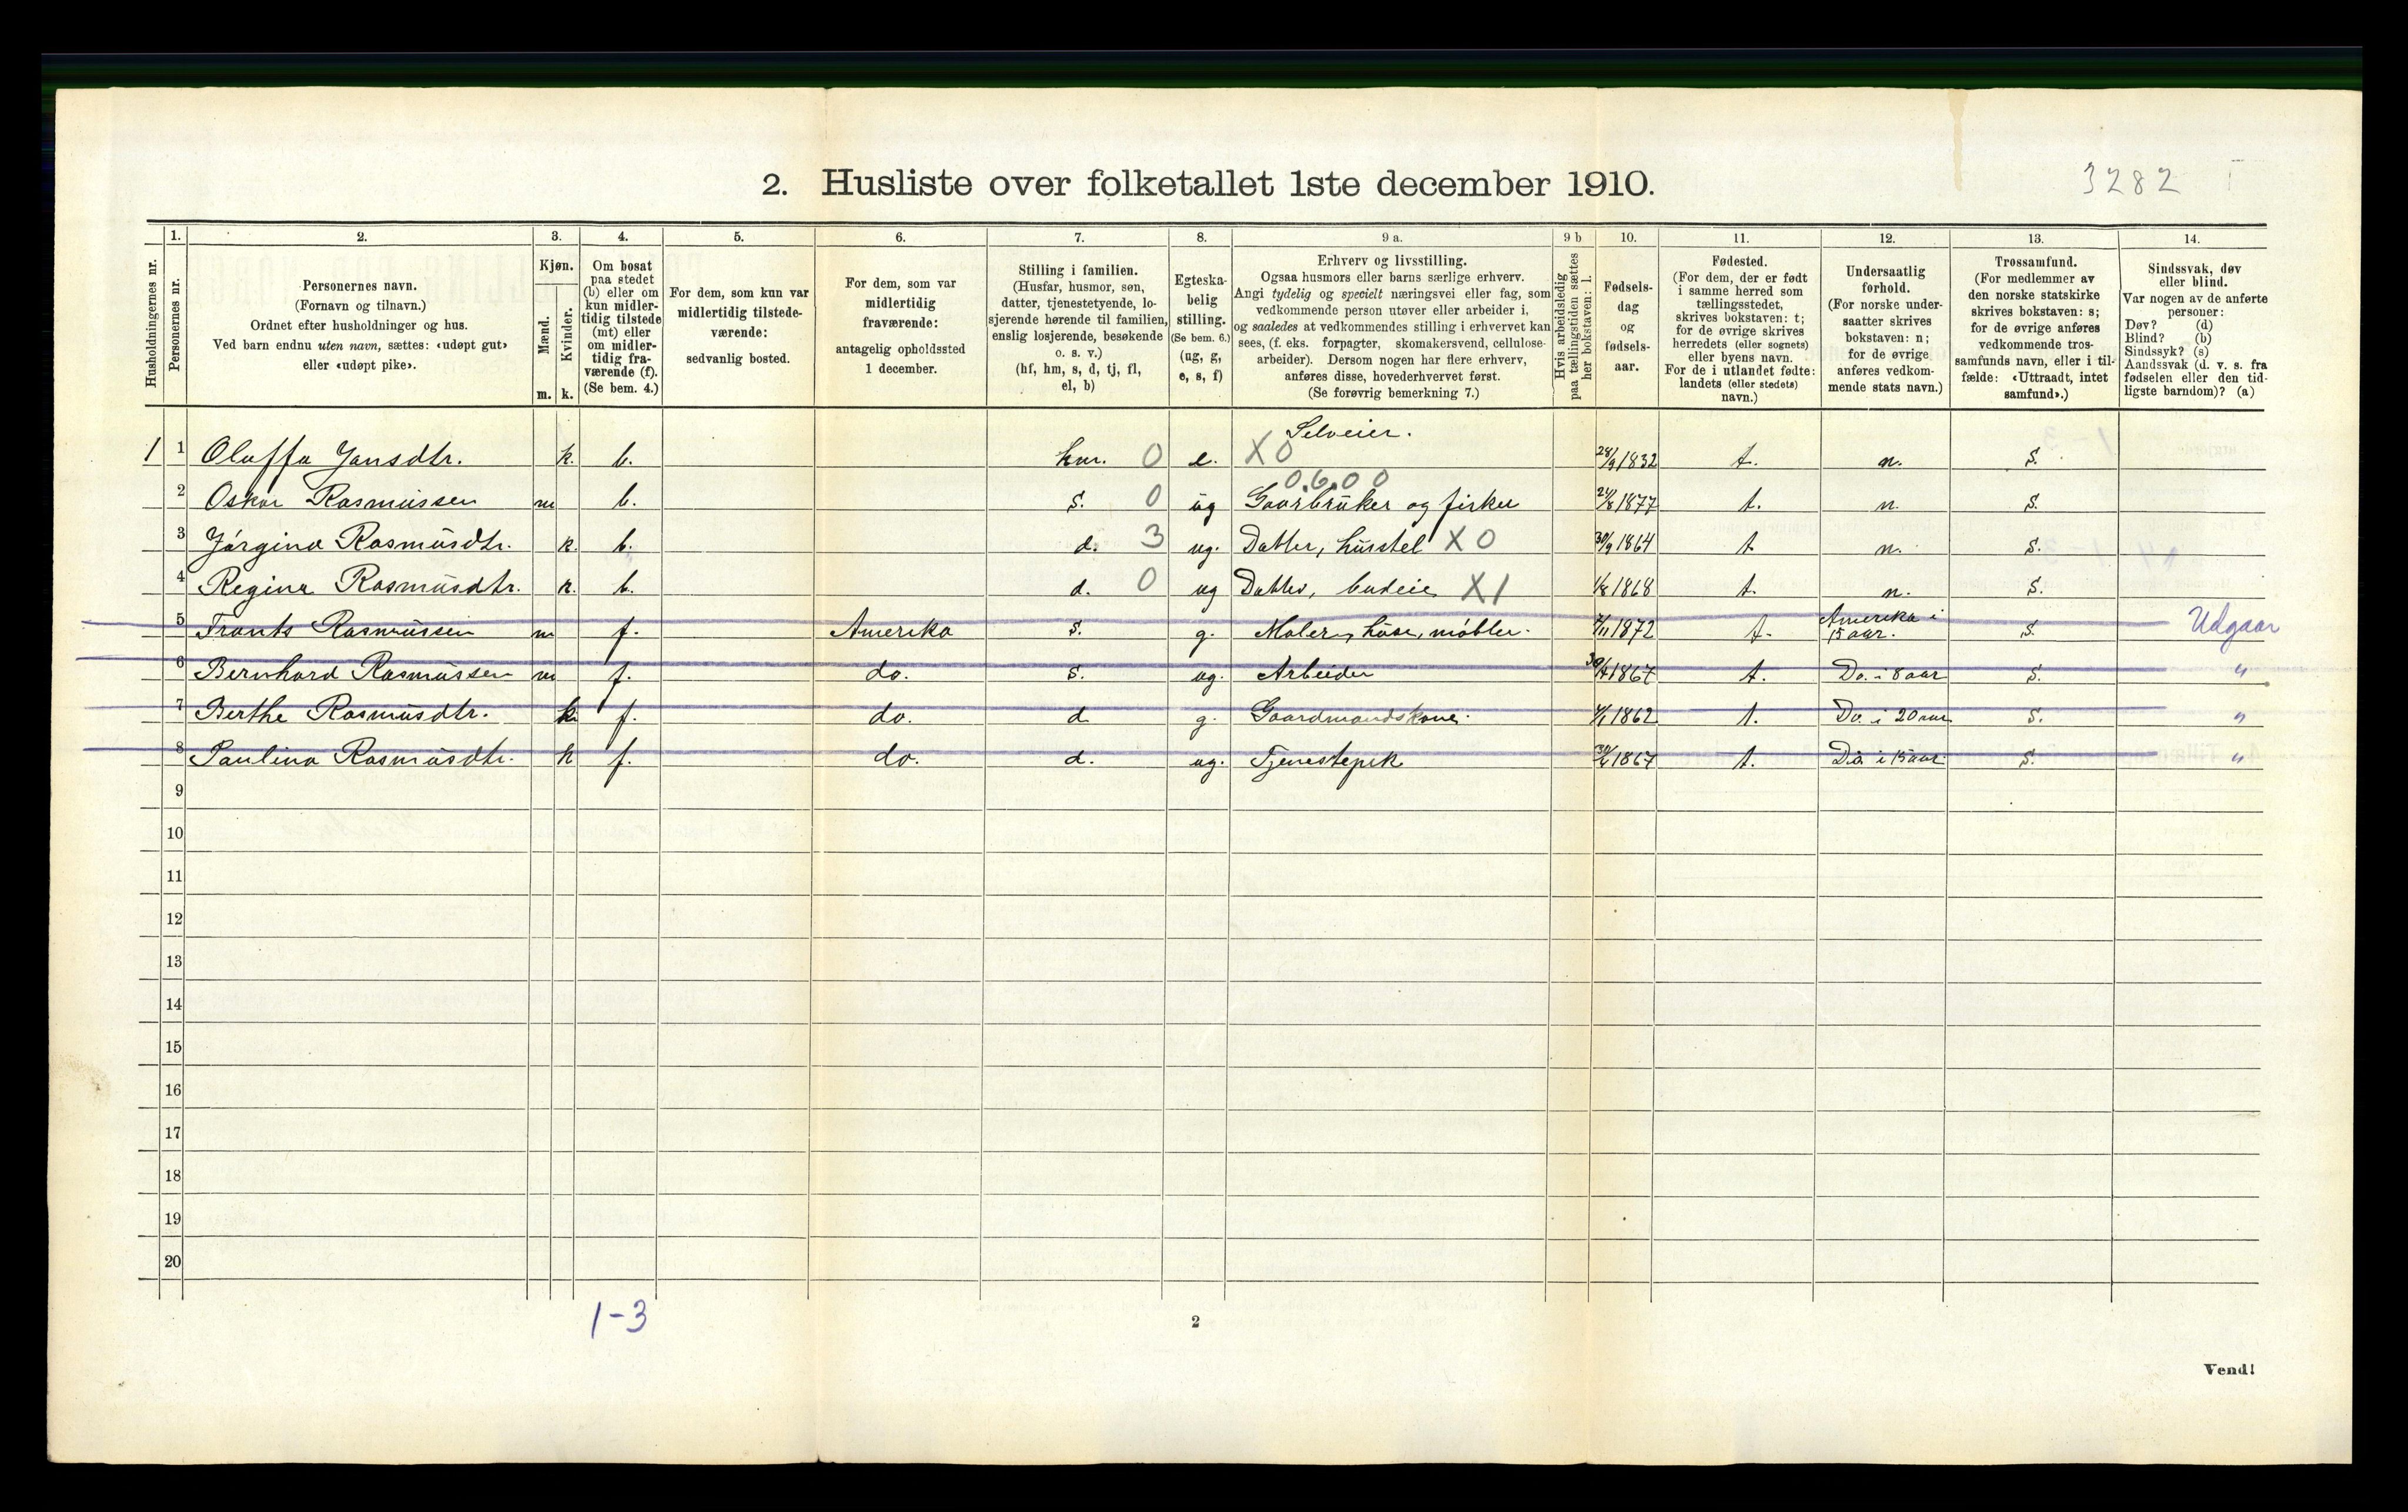 2. Husliste over folketallet 1ste december 1910.
3282
Husholdningernes nr.
1.
Personernes nr.
2.
Personernes navn.
(Fornavn og tilnavn.)
Ordnet efter husholdninger og hus.
Ved barn endnu uten navn, sættes: «udøpt gut»
eller «udøpt pike».
3.
Kjøn.
Mænd.
Kvinder.
m. k.
4.
Om bosat
paa stedet
(b) eller om
kun midler-
tidig tilstede
(mt) eller
om midler-
tidig fra-
værende (f).
(Se bem. 4.)
5.
For dem, som kun var
midlertidig tilstede-
værende:
sedvanlig bosted.
6.
For dem, som var
midlertidig
fraværende:
antagelig opholdssted
1 december.
7.
Stilling i familien.
(Husfar, husmor, søn,
datter, tjenestetyende, lo-
sjerende hørende til familien,
enslig losjerende, besøkende
o. s. v.)
(hf, hm, s, d, tj, fl,
el, b)
8.
Egteska-
belig
stilling.
(Se bem. 6.)
(ug, g,
e, s, f)
9 a.
Erhverv og livsstilling.
Ogsaa husmors eller barns særlige erhverv.
Angi tydelig og specielt næringsvei eller fag, som
vedkommende person utøver eller arbeider i,
og saaledes at vedkommendes stilling i erhvervet kan
sees, (f. eks. forpagter, skomakersvend, cellulose-
arbeider). Dersom nogen har flere erhverv,
anføres disse, hovederhvervet først.
(Se forøvrig bemerkning 7.)
9 b
Hvis arbeidsledig
paa tællingstiden sættes
her bokstaven: l.
10.
Fødsels-
dag
og
fødsels-
aar.
11.
Fødested.
(For dem, der er født
i samme herred som
tællingsstedet,
skrives bokstaven: t;
for de øvrige skrives
herredets (eller sognets)
eller byens navn.
For de i utlandet fødte:
landets (eller stedets)
navn.)
12.
Undersaatlig
forhold.
(For norske under-
saatter skrives
bokstaven: n;
for de øvrige
anføres vedkom-
mende stats navn.)
13.
Trossamfund.
(For medlemmer av
den norske statskirke
skrives bokstaven: s;
for de øvrige anføres
vedkommende tros-
samfunds navn, eller i til-
fælde: «Uttraadt, intet
samfund».)
14.
Sindssvak, døv
eller blind.
Var nogen av de anførte
personer:
Døv? (d)
Blind? (b)
Sindssyk? (s)
Aandssvak (d. v. s. fra
fødselen eller den tid-
ligste barndom)? (a)
Selveier.
1 1 Oluffa Jansdtr. k. b. hm. 0 e. X0 28/9 1832 t. n. s.
0.6.00
2 Oskar Rasmussen m b. s. 0 ug Gaarbruker og fisker 1877 t. n. s.
3 Jørgina Rasmusdtr. k. b. d. 3 ug. Datter, husstel X0 30/9 1864 t. n. s.
4 Regina Rasmusdtr. k. b. d. 0 ug Datter, budeie X1 1/8 1868 t. n. s.
5 Frants Rasmussen m f. Amerika s. g. Maler, huse, møbler. 7/11 1872 t. Amerika i 15 aar. s. Udgaar
6 Bernhard Rasmussen m f. do. s. ug. Arbeider 1867 t. Do. i 8 aar s. "
7 Berthe Rasmusdtr. k. f. do. d g. Gaardmandskone. 1862 t. Do. i 20 aar s. "
8 Paulina Rasmusdtr. k f. do. d. ug. Tjenestepik 1867 t. Do i 15 aar s. "
9
10
11
12
13
14
15
16
17
18
19
20
1-3
2
Vend!